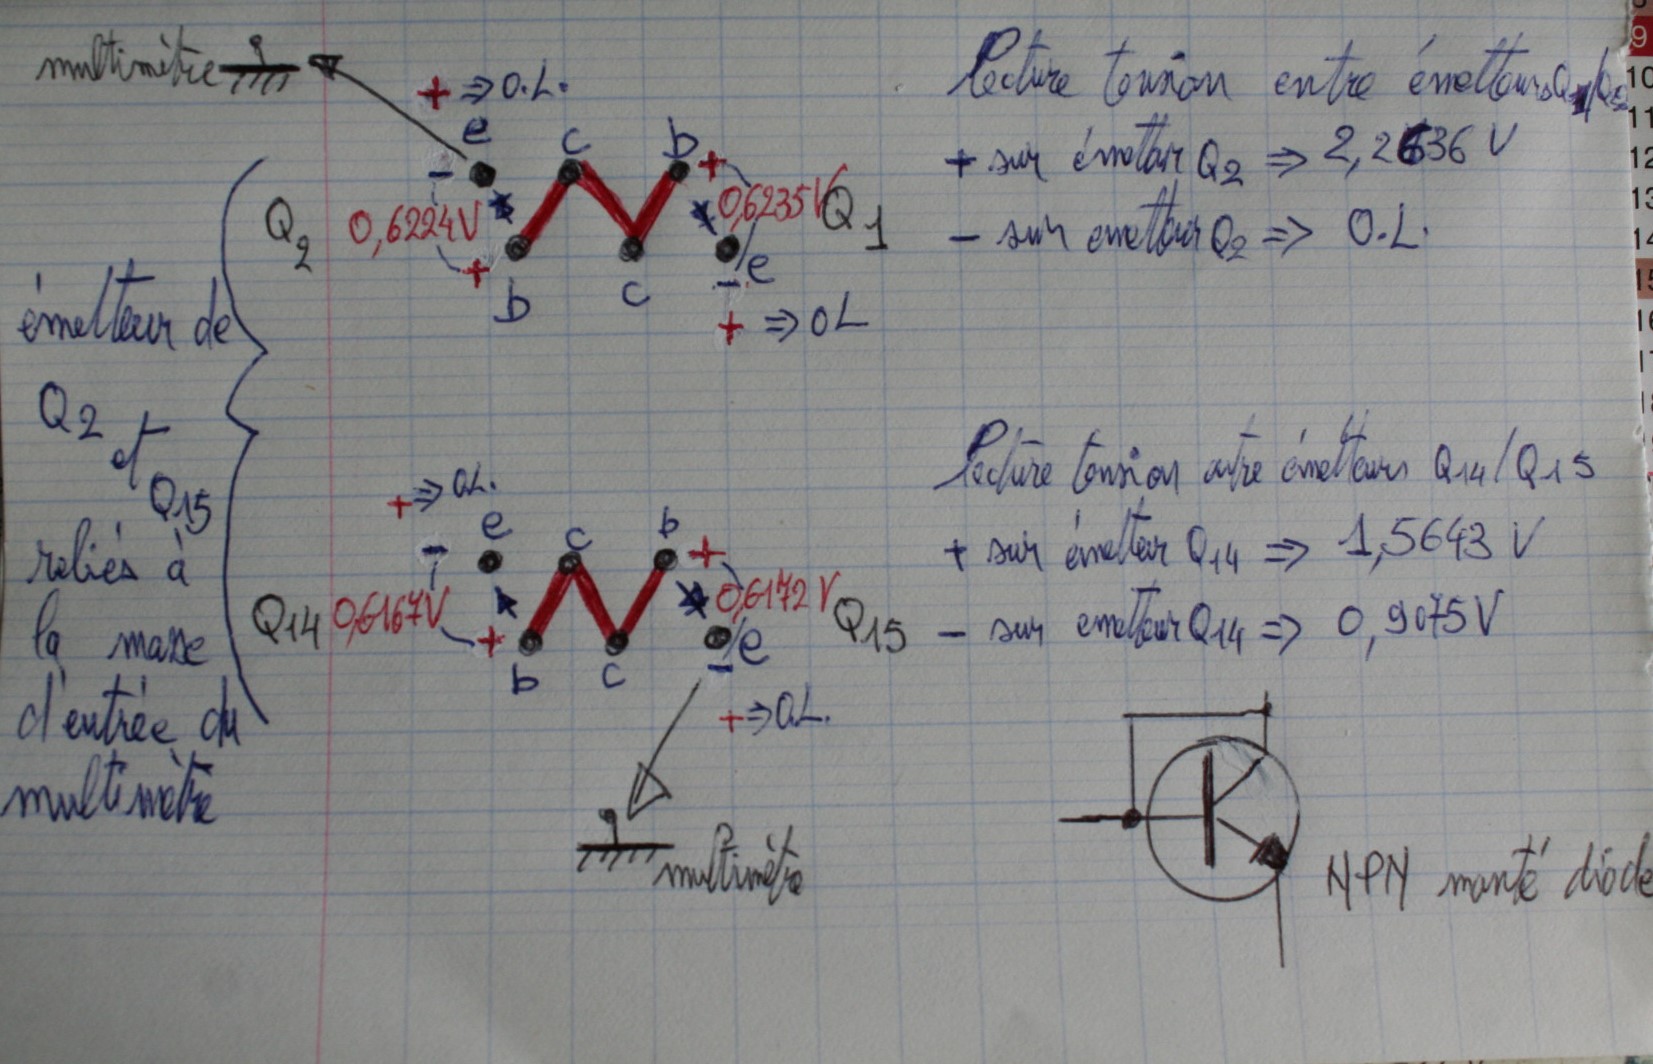 multimètre
+ ⇒ O.L.
e c b +
-
Q2 0,6224V 0,6235V Q1
+
b c e
-
+ ⇒ OL
émetteur de
Q2
et
Q15
reliés à
la masse
d'entrée du
multimètre
+ ⇒ O.L.
e c b +
-
Q14 0,6167V 0,6172V Q15
+
b c e
-
+ ⇒ O.L.
multimètre
Lecture tension entre émetteurs
+ sur émetteur Q2 ⇒ 2,2636 V
- sur emetteur Q2 ⇒ O.L.
Lecture tension entre émetteurs Q14/Q15
+ sur émetteur Q14 ⇒ 1,5643 V
- sur emetteur Q14 ⇒ 0,9075V
NPN monté diode
9
10
11
12
13
14
15
16
17